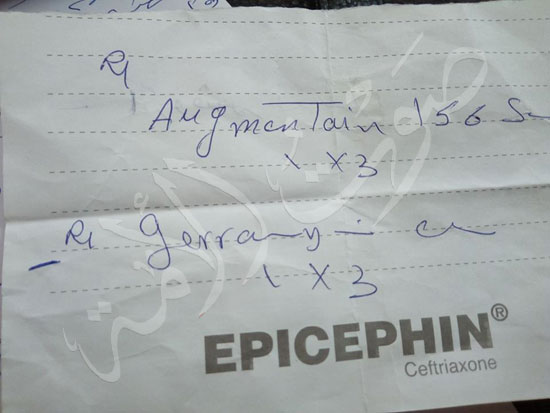 R/
Augmentain 156 S
1 X 3
R/
1 X 3
EPICEPHIN®
Ceftriaxone
صوت الأمة